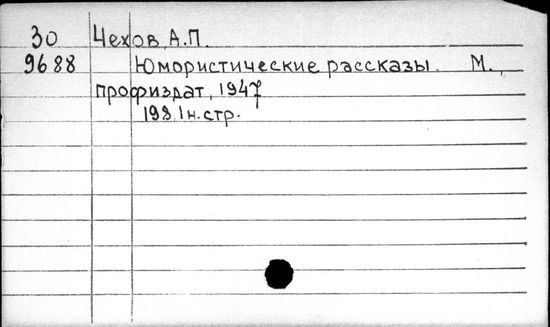 30 Чехов, А.П.
9688 Юмористические рассказы. М.,
профиздат, 1947
198, 1н.стр.